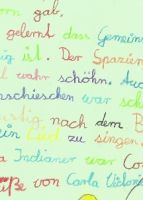 orn gab,
gelernt dass Gemeins
ig ist. Der Spazier
l wahr schöhn. Auc
nschieschen war sch
ustig nach dem B
ein Lied zu singen.
a Indianer war Co
üße von Carla Viktoria